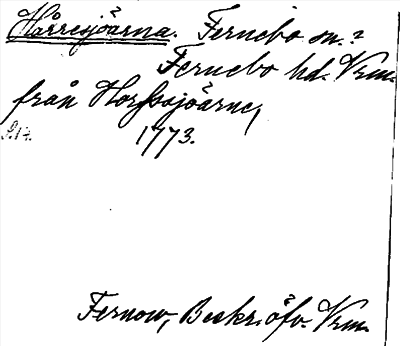 Hårrsjöarna. Fernebo sn.?
Fernebo hd. Vrm.
från Horssjöarne,
S. 14.
1773.
Fernow, Beskr. öfv. Vrm.